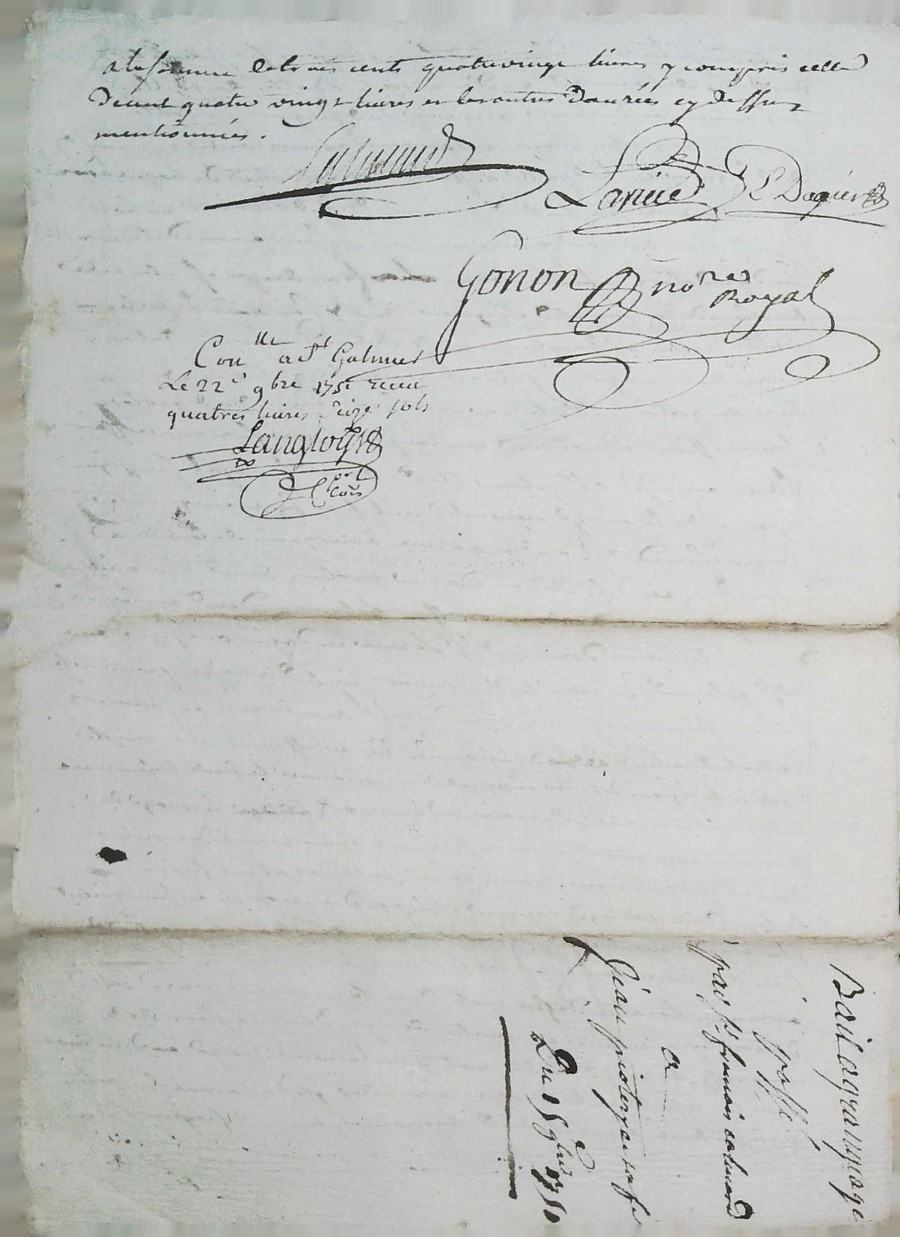 a la somme de trois cents quatrevingt livres y compris celle
de cent quatre vingt livres et les autres danrées cy dessus
mentionnées.
Larüe Dagier
Gonon nore
Royal
Conlle a St Galmier
Le 22e 9bre 175 receu
quatres livres seize sols
Langlois
Bail a grangeage
passé
par Sr francois
a
Jean
Du 15 9bre 1750